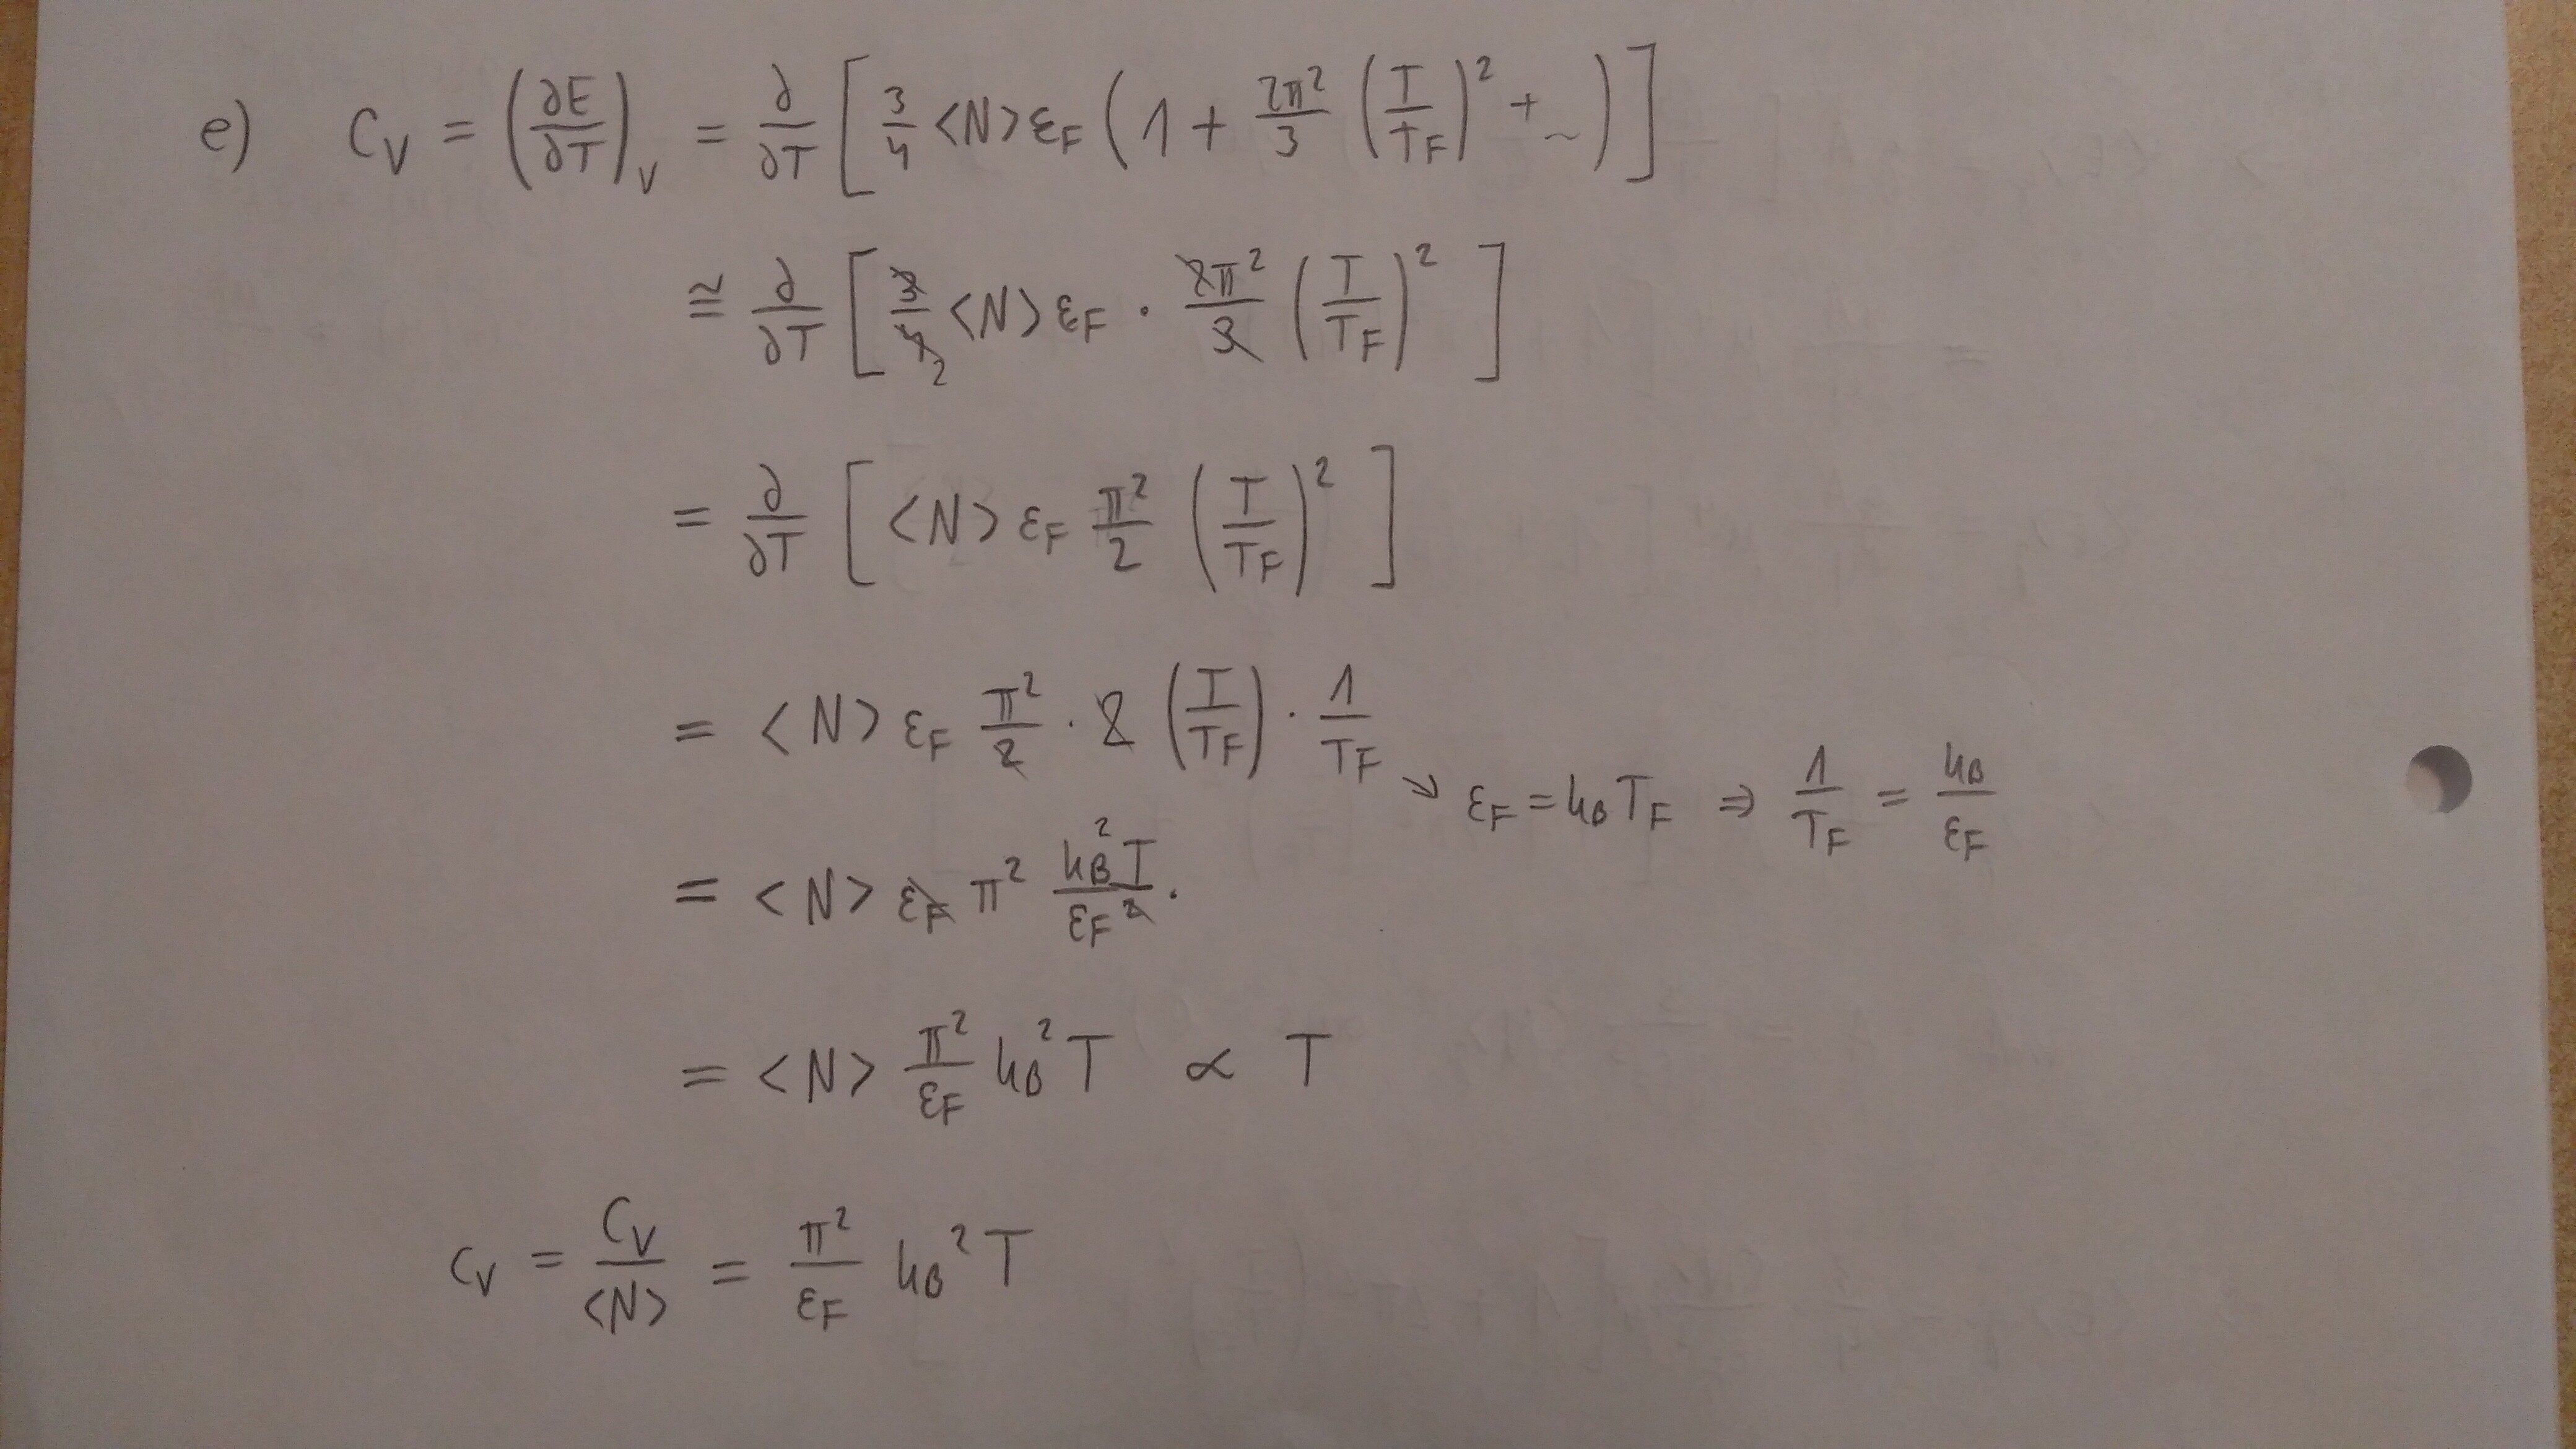 e) C_V = (∂E/∂T)_V = ∂/∂T [ 3/4 <N> ε_F ( 1 + 2π²/3 (T/T_F)² + ... ) ]
≅ ∂/∂T [ 3/4 2 <N> ε_F · 2π²/3 (T/T_F)² ]
= ∂/∂T [ <N> ε_F π²/2 (T/T_F)² ]
= <N> ε_F π²/2 · 2 (T/T_F) · 1/T_F
↘ ε_F = k_B T_F ⇒ 1/T_F = k_B/ε_F
= <N> ε_F π² k_B² T/ε_F² ·
= <N> π²/ε_F k_B² T ∝ T
c_V = C_V/<N> = π²/ε_F k_B² T